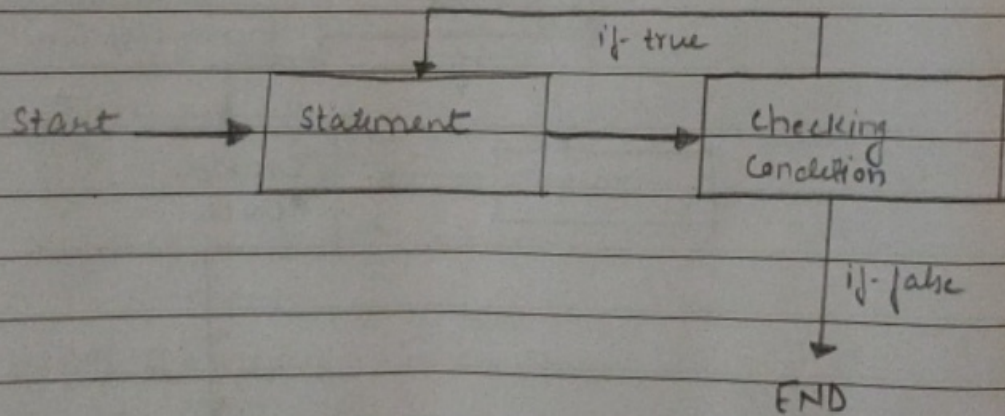 if true
Start
Statement
Checking
Condition
if false
END